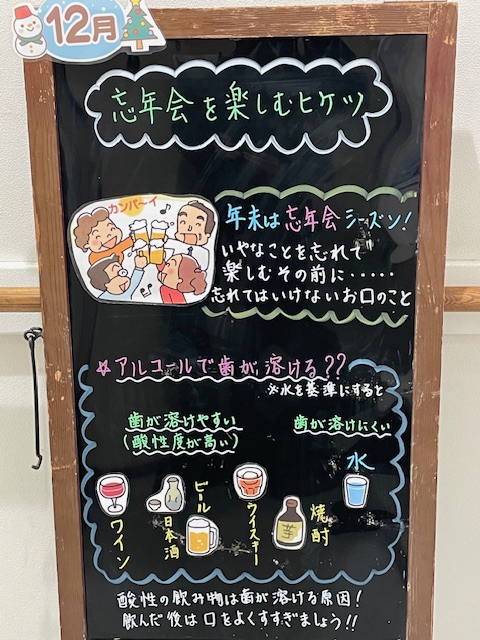 12月
忘年会を楽しむヒケツ
カンパ～イ
年末は忘年会シーズン！
いやなことを忘れて
楽しむその前に・・・・・
忘れてはいけないお口のこと
☆アルコールで歯が溶ける??
※水を基準にすると
歯が溶けやすい
(酸性度が高い)
歯が溶けにくい
ワイン
日本酒
ビール
ウイスキー
芋
焼酎
水
酸性の飲み物は歯が溶ける原因！
飲んだ後は口をよくすすぎましょう!!